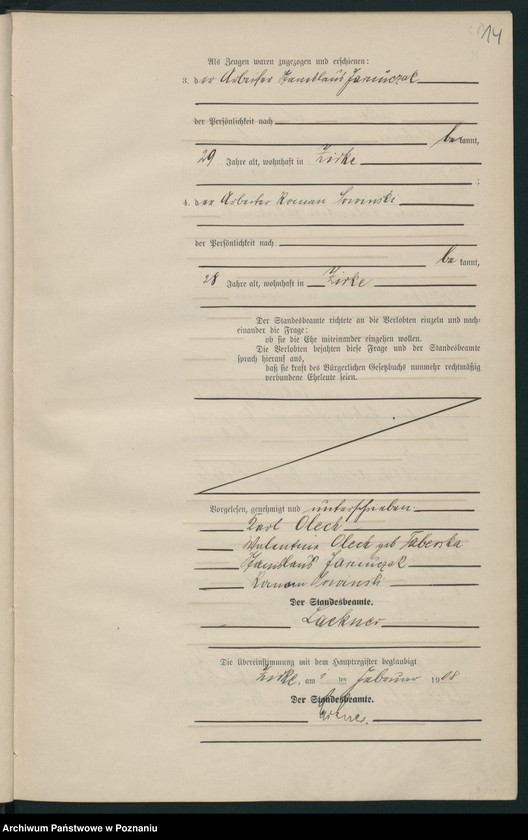 14
Als Zeugen waren zugezogen und erschienen:
3. der Arbeiter Stanislaus Jaruczak
der Persönlichkeit nach
bekannt,
29 Jahre alt, wohnhaft in Zirke
;
4. der Arbeiter Roman Sowinski
der Persönlichkeit nach
bekannt,
28 Jahre alt, wohnhaft in Zirke
Der Standesbeamte richtete an die Verlobten einzeln und nach-
einander die Frage:
ob sie die Ehe miteinander eingehen wollen.
Die Verlobten bejahten diese Frage und der Standesbeamte
sprach hierauf aus,
daß sie kraft des Bürgerlichen Gesetzbuchs nunmehr rechtmäßig
verbundene Eheleute seien.
Vorgelesen, genehmigt und unterschrieben
Karl Olech
Walentine Olech geb Faberska
Stanislaus
Roman Sowinski
Der Standesbeamte.
Lackner
Die Übereinstimmung mit dem Hauptregister beglaubigt
Zirke, am ten Februar 1908
Der Standesbeamte.
Archiwum Państwowe w Poznaniu